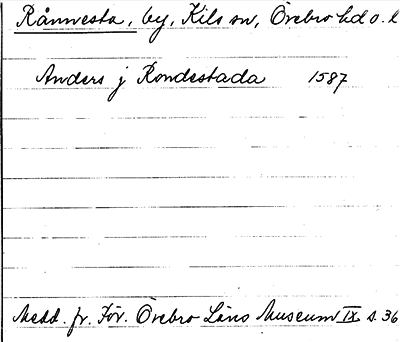 Rånnesta, by, Kils sn, Örebro hd o. l
Anders j Rondestada 1587
Medd. fr. För. Örebro Läns Museum IX s. 36